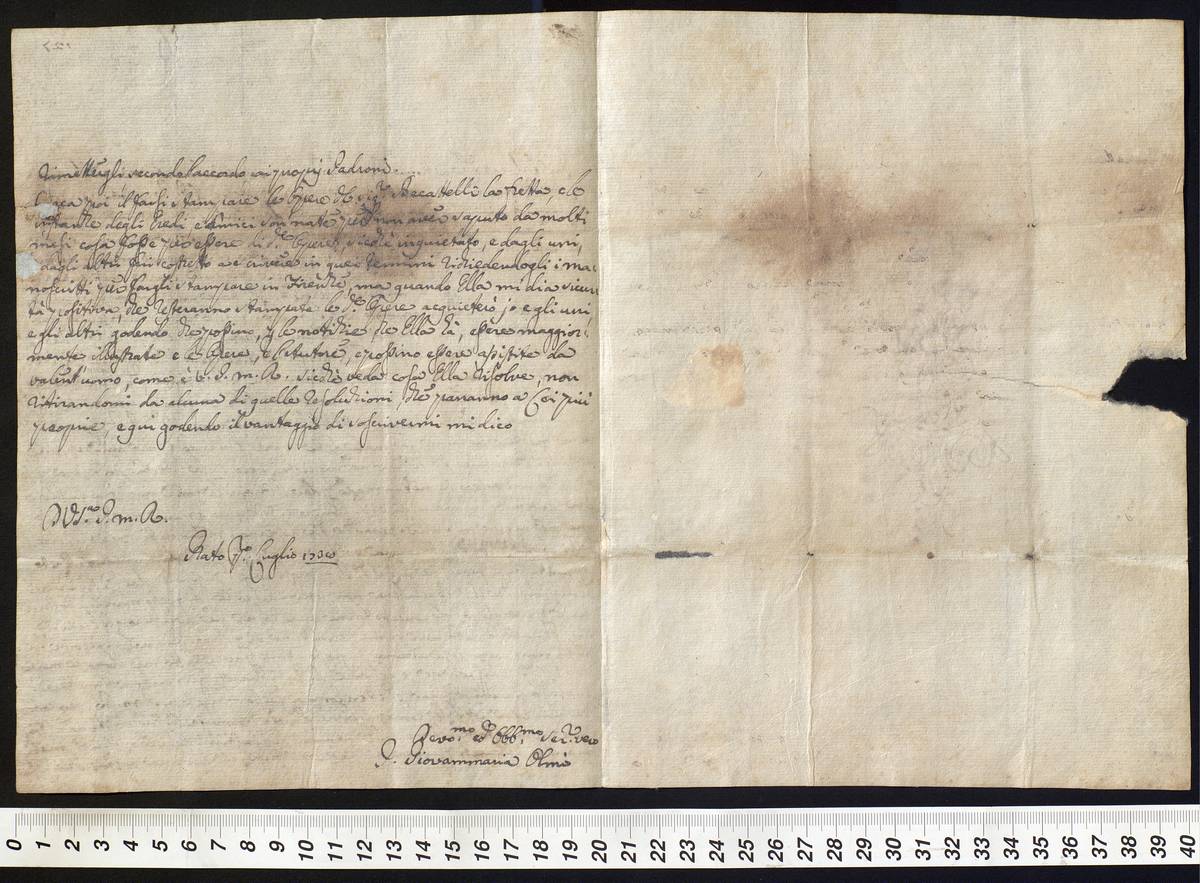 rimettergli secondo l'accordo ai proprj Padroni.
poi il farsi stampare le Opere del Sig.r Becattelli la fretta, e le
instanze degli Eredi e Amici son nate per non aver saputo da molti
mesi cosa fosse per essere di d.e Opere, sicchè inquietato, e dagli uni,
e dagli altri fui costretto a scrivere in quei termini richiedendogli i ma-
noscritti per fargli stampare in Firenze, ma quando Ella mi dia sicu-
tà positiva, che resteranno stampate le d.e Opere acquieterò jo e gli uni,
e gli altri godendo che possino, per le notizie che Ella dà, essere maggior-
mente illustrate e le Opere, e l'Autore, e possino essere assistite da
valent'uomo, come è V.S. m. R. sicchè veda cosa Ella risolve, non
ritirandomi da alcuna di quelle resoluzioni, che parranno a Lei più
proprie, e qui godendo il vantaggio di soscrivermi mi dico
D V.S. m. R.
Prato P.mo Luglio
Devo.mo ed Obb.mo Ser.r vero
Giovammaria Olmi